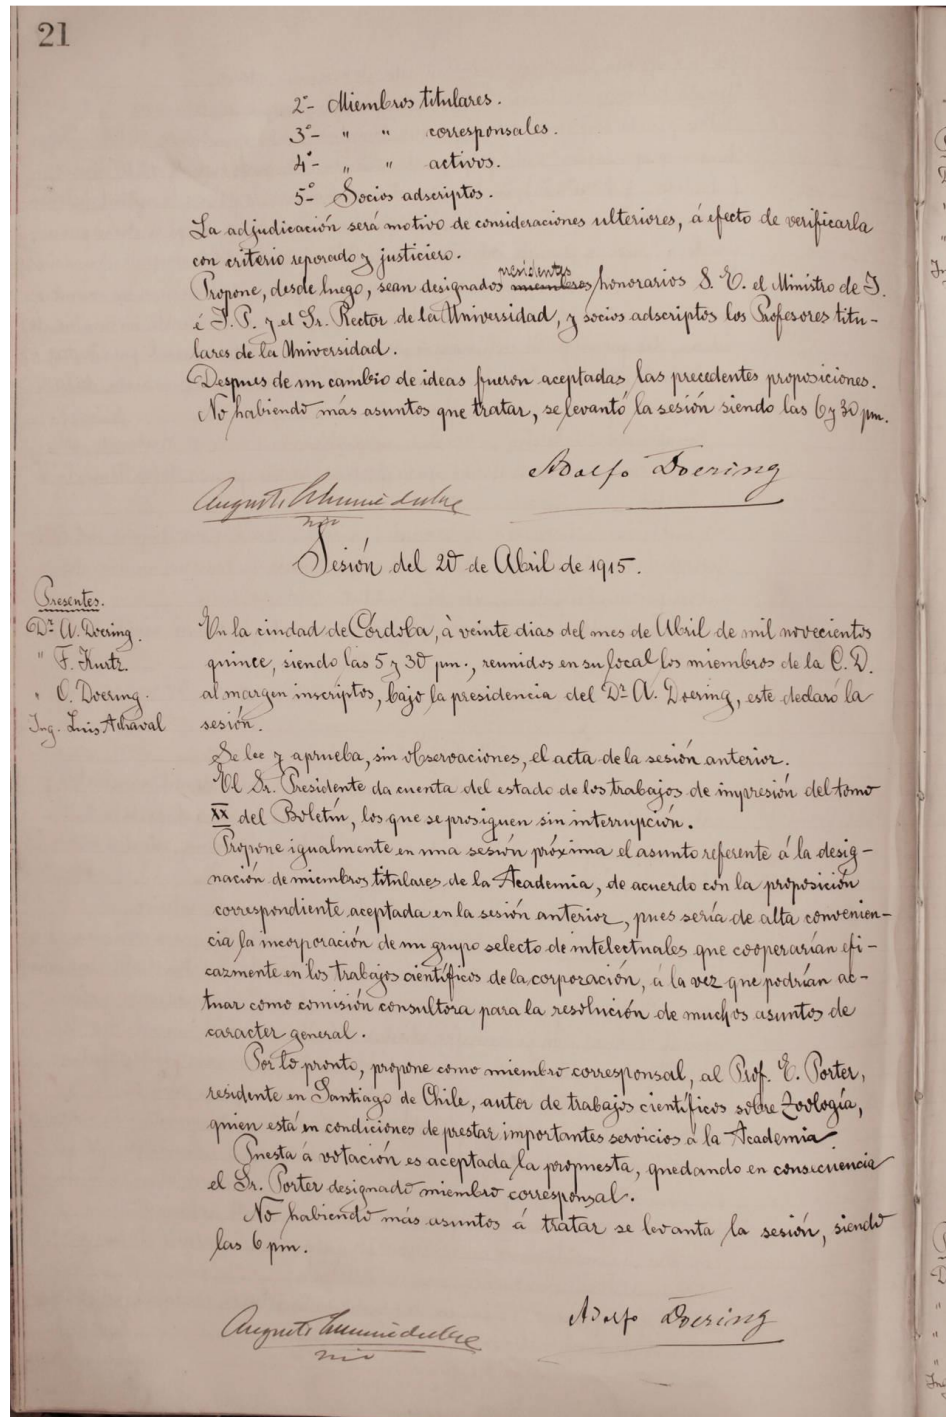 21
2º- Miembros titulares.
3º- " " corresponsales.
4º- " " activos.
5º- Socios adscriptos.
La adjudicación será motivo de consideraciones ulteriores, á efecto de verificarla
con criterio reposado y justiciero.
presidentes
Propone, desde luego, sean designados miembros honorarios S. E. el Ministro de J.
é I. P. y el Sr. Rector de la Universidad, y socios adscriptos los Profesores titu-
lares de la Universidad.
Despues de un cambio de ideas fueron aceptadas las precedentes proposiciones.
No habiendo más asuntos que tratar, se levantó la sesión siendo las 6 y 30 pm.
Adolfo Doering
Sesión del 20 de Abril de 1915.
Presentes.
Dr. A. Doering.
" F. Kurtz.
" O. Doering.
Ing. Luis Achával
En la ciudad de Córdoba, à veinte dias del mes de Abril de mil novecientos
quince, siendo las 5 y 30 pm., reunidos en su local los miembros de la C. D.
al margen inscriptos, bajo la presidencia del Dr. A. Doering, este declaró la
sesión.
Se lee y aprueba, sin observaciones, el acta de la sesión anterior.
El Sr. Presidente da cuenta del estado de los trabajos de impresión del tomo
XX del Boletín, los que se prosiguen sin interrupción.
Propone igualmente en una sesión próxima el asunto referente á la desig-
nación de miembros titulares de la Academia, de acuerdo con la proposición
correspondiente aceptada en la sesión anterior, pues sería de alta convenien-
cia la incorporación de un grupo selecto de intelectuales que cooperarían efi-
cazmente en los trabajos científicos de la corporación, á la vez que podrían ac-
tuar como comisión consultora para la resolución de muchos asuntos de
caracter general.
Por lo pronto, propone como miembro corresponsal, al Prof. E. Porter,
residente en Santiago de Chile, autor de trabajos científicos sobre Zoología,
quien está en condiciones de prestar importantes servicios á la Academia
Puesta á votación es aceptada la propuesta, quedando en consecuencia
el Sr. Porter designado miembro corresponsal.
No habiendo más asuntos á tratar se levanta la sesión, siendo
las 6 pm.
Adolfo Doering